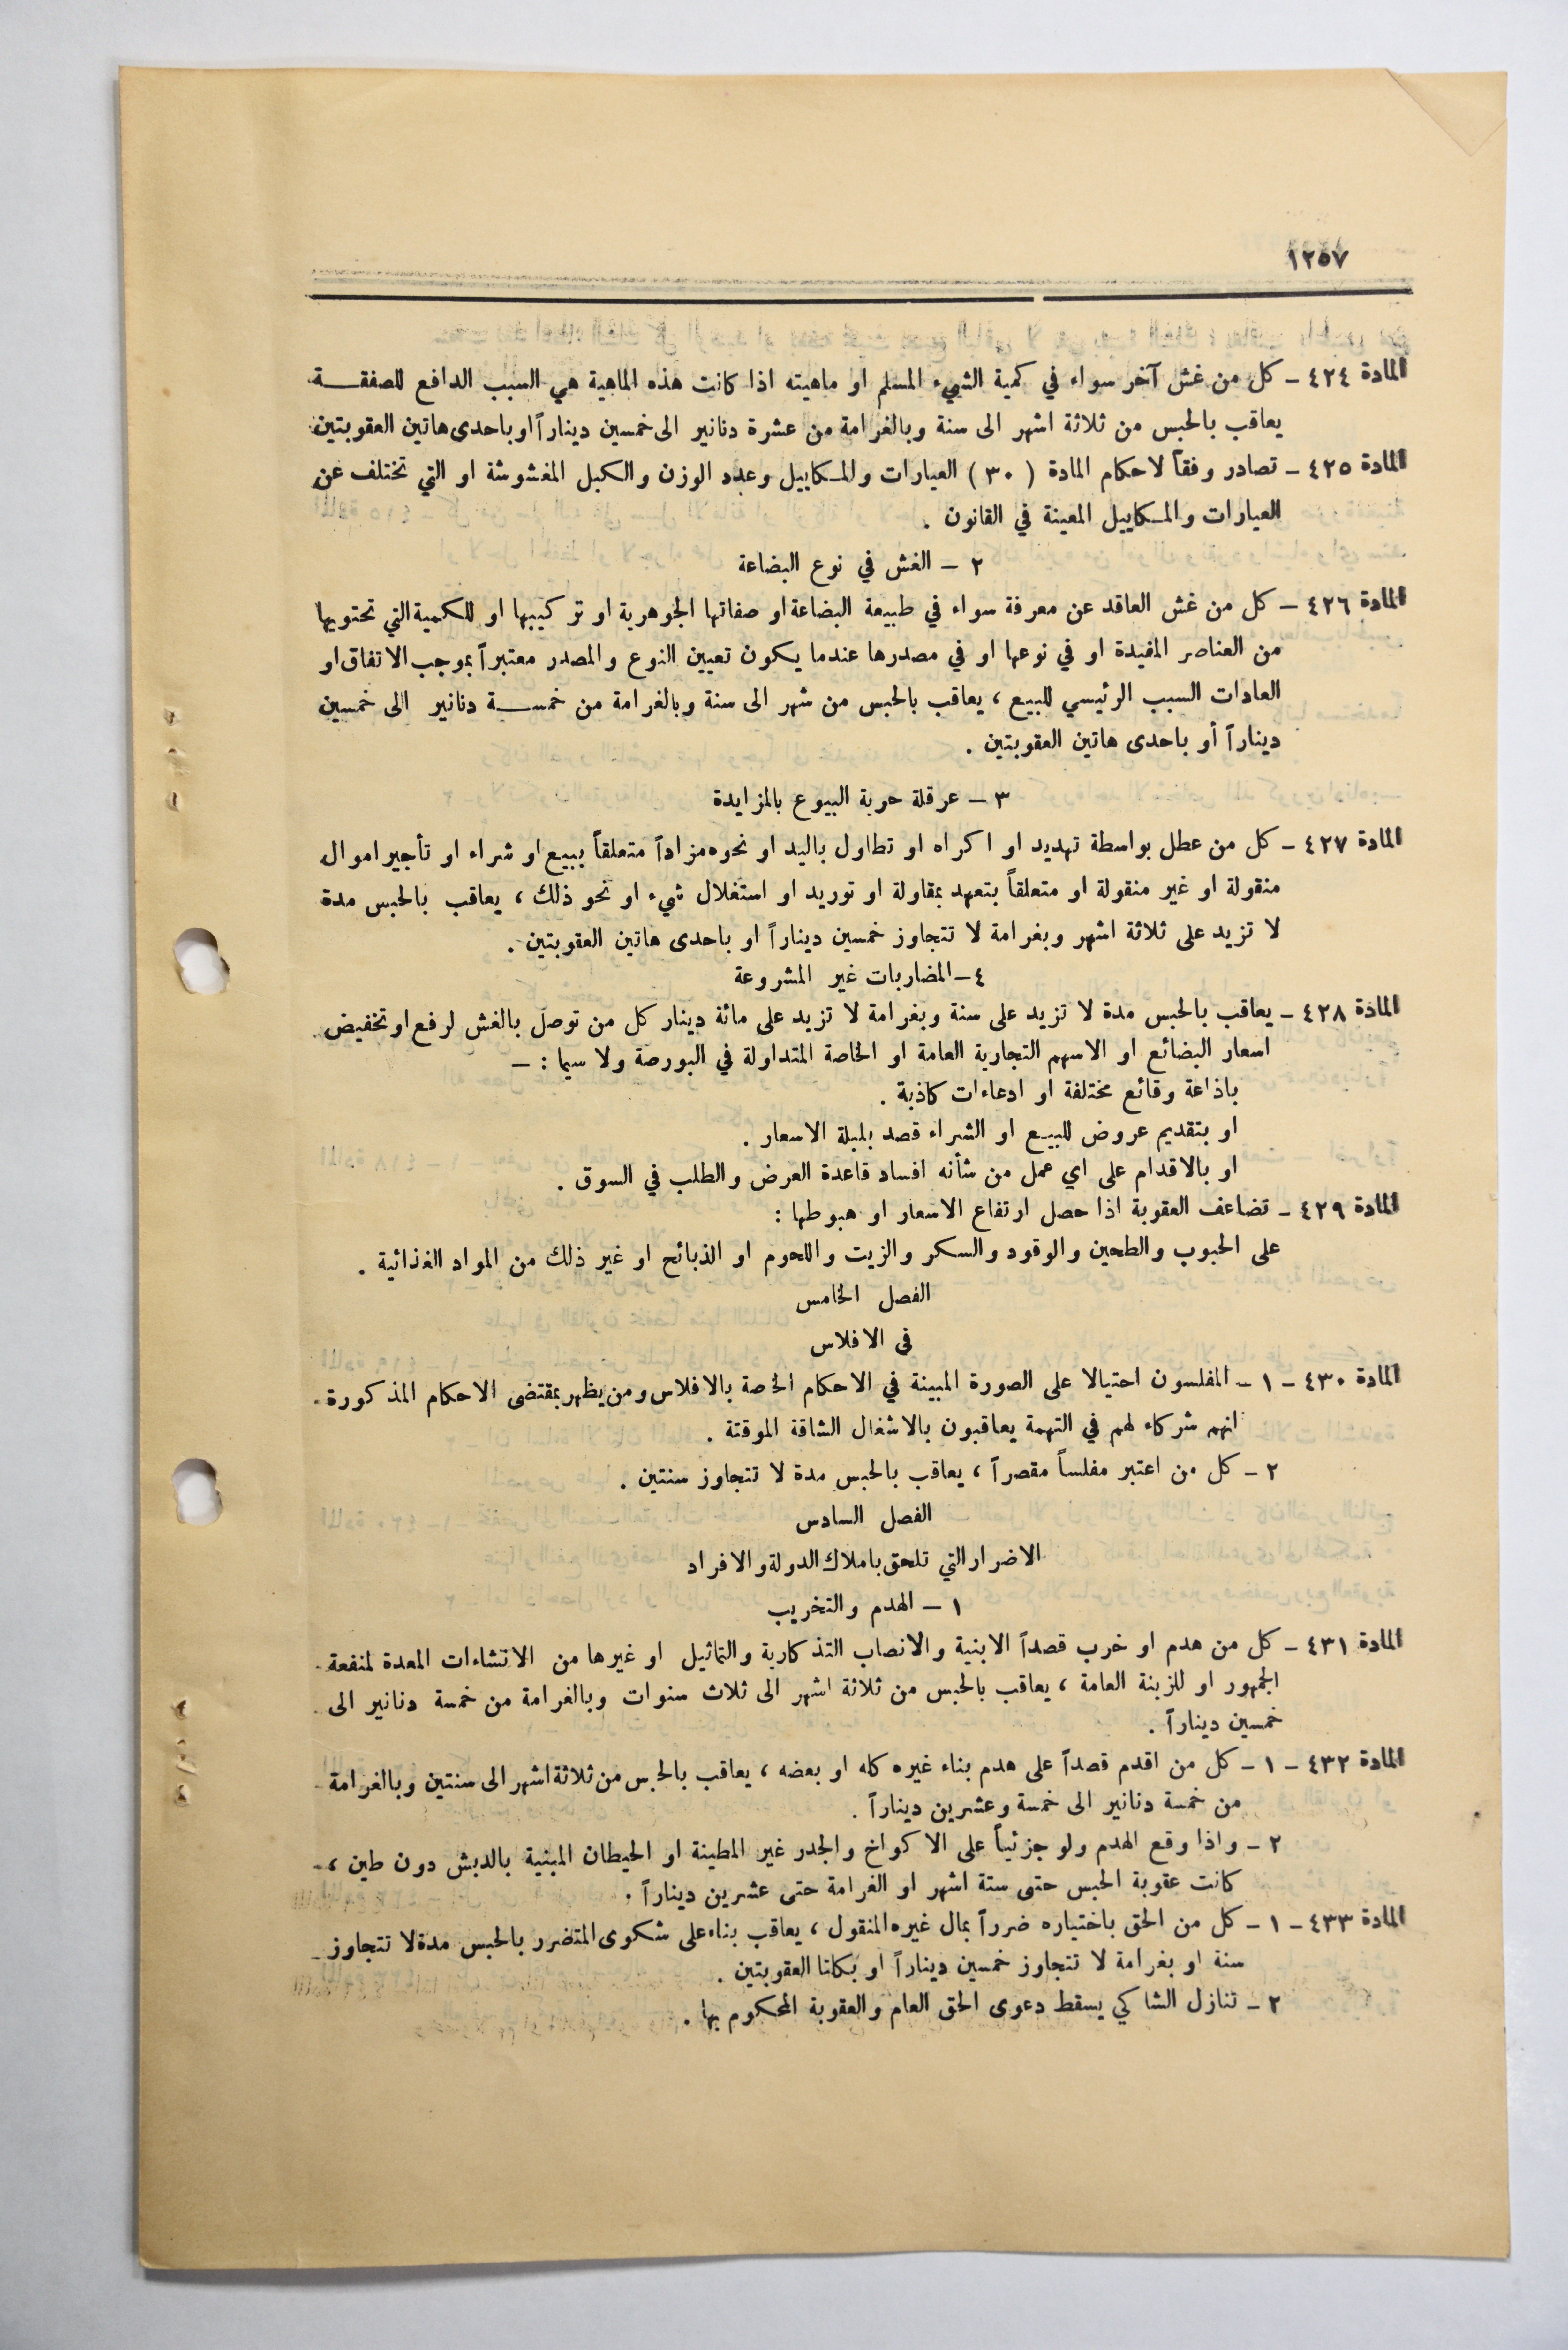 ١٢٥٧
المادة ٤٢٤ – كل من غش آخر سواء في كمية الشيء المسلم او ماهيته اذا كانت هذه الماهية هي السبب الدافع للصفقـــة
يعاقب بالحبس من ثلاثة اشهر الى سنة وبالغرامة من عشرة دنانير الى خمسين ديناراً او باحدى هاتين العقوبتين
المادة ٤٢٥ – تصادر وفقاً لاحكام المادة ( ٣٠ ) العيارات والمكاييل وعدد الوزن والكيل المغشوشة او التي تختلف عن
العيارات والمكاييل المعينة في القانون .
٢ – الغش في نوع البضاعة
المادة ٤٢٦ – كل من غش العاقد عن معرفة سواء في طبيعة البضاعة او صفاتها الجوهرية او تركيبها او للكمية التي تحتويها
من العناصر المفيدة او في نوعها او في مصدرها عندما يكون تعيين النوع والمصدر معتبراً بموجب الاتفاق او
العادات السبب الرئيسي للبيع ، يعاقب بالحبس من شهر الى سنة وبالغرامة من خمســـة دنانير الى خمسين
ديناراً أو باحدى هاتين العقوبتين .
٣ – عرقلة حرية البيوع بالمزايدة
المادة ٤٢٧ – كل من عطل بواسطة تهديد او اكراه او تطاول باليد او نحوه مزاداً متعلقاً ببيع او شراء او تأجير اموال
منقولة او غير منقولة او متعلقاً بتعهد بمقاولة او توريد او استغلال شيء او نحو ذلك ، يعاقب بالحبس مدة
لا تزيد على ثلاثة اشهر وبغرامة لا تتجاوز خمسين ديناراً او باحدى هاتين العقوبتين .
٤ – المضاربات غير المشروعة
المادة ٤٢٨ – يعاقب بالحبس مدة لا تزيد على سنة وبغرامة لا تزيد على مائة دينار كل من توصل بالغش لرفع او تخفيض
اسعار البضائع او الاسهم التجارية العامة او الخاصة المتداولة في البورصة ولا سيما : –
باذاعة وقائع مختلفة او ادعاءات كاذبة .
او بتقديم عروض للبيع او الشراء قصد بلبلة الاسعار .
او بالاقدام على اي عمل من شأنه افساد قاعدة العرض والطلب في السوق .
المادة ٤٢٩ – تضاعف العقوبة اذا حصل ارتفاع الاسعار او هبوطها :
على الحبوب والطحين والوقود والسكر والزيت واللحوم او الذبائح او غير ذلك من المواد الغذائية .
الفصل الخامس
في الافلاس
المادة ٤٣٠ – ١ – المفلسون احتيالا على الصورة المبينة في الاحكام الخاصة بالافلاس ومن يظهر بمقتضى الاحكام المذكورة
انهم شركاء لهم في التهمة يعاقبون بالاشغال الشاقة الموقتة .
٢ – كل من اعتبر مفلساً مقصراً ، يعاقب بالحبس مدة لا تتجاوز سنتين .
الفصل السادس
الاضرار التي تلحق باملاك الدولة والافراد
١ – الهدم والتخريب
المادة ٤٣١ – كل من هدم او خرب قصداً الابنية والانصاب التذكارية والتماثيل او غيرها من الانشاءات المعدة لمنفعة
الجمهور او للزينة العامة ، يعاقب بالحبس من ثلاثة اشهر الى ثلاث سنوات وبالغرامة من خمسة دنانير الى
خمسين ديناراً .
المادة ٤٣٢ – ١ – كل من اقدم قصداً على هدم بناء غيره كله او بعضه ، يعاقب بالحبس من ثلاثة اشهر الى سنتين وبالغرامة
من خمسة دنانير الى خمسة وعشرين ديناراً .
٢ – واذا وقع الهدم ولو جزئياً على الاكواخ والجدر غير المطينة او الحيطان المبنية بالدبش دون طين ،
كانت عقوبة الحبس حتى ستة اشهر او الغرامة حتى عشرين ديناراً .
المادة ٤٣٣ – ١ – كل من الحق باختياره ضرراً بمال غيره المنقول ، يعاقب بناء على شكوى المتضرر بالحبس مدة لا تتجاوز
سنة او بغرامة لا تتجاوز خمسين ديناراً او بكلتا العقوبتين .
٢ – تنازل الشاكي يسقط دعوى الحق العام والعقوبة المحكوم بها .